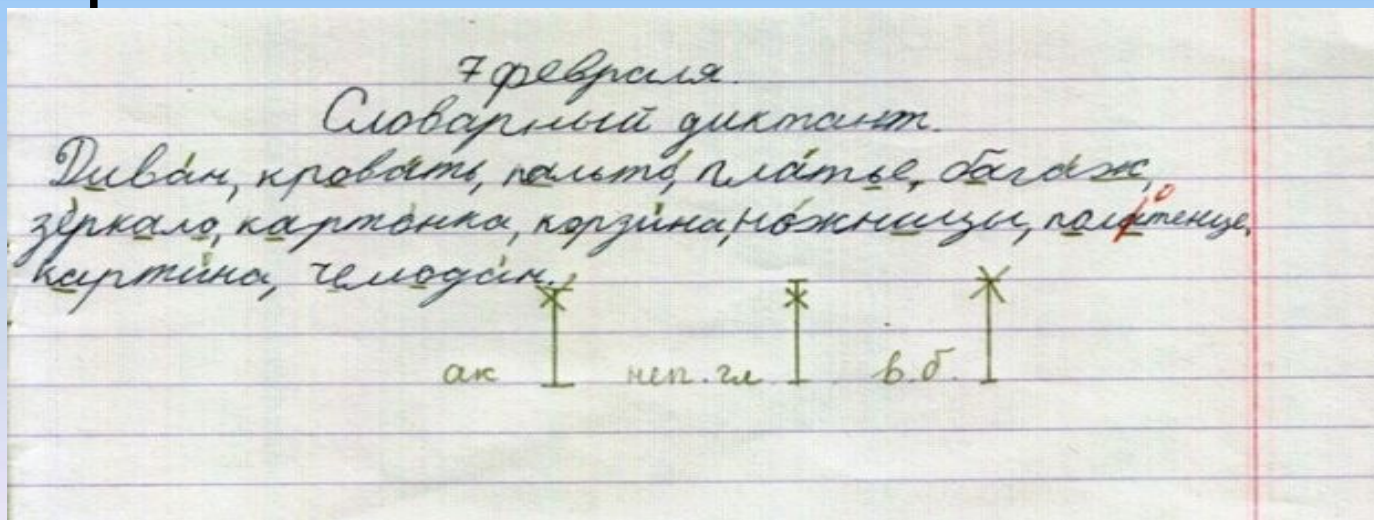 7 февраля.
Словарный диктант.
Дива́н, крова́ть, пальто́, пла́тье, бага́ж,
зе́ркало, карто́нка, корзи́на, но́жницы, полатенце,
о
карти́на, чемода́н.
ак неп. гл в. б.